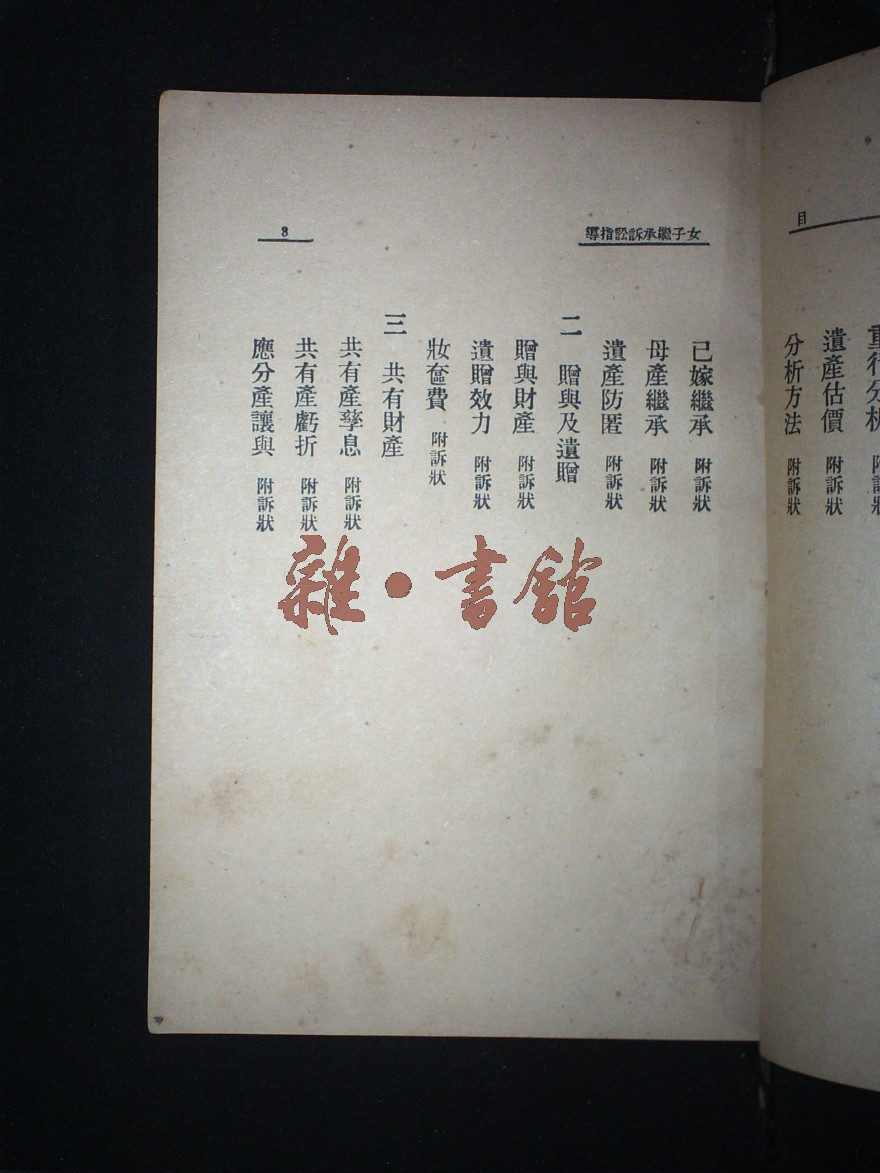 目
重行分析 附訴狀
遺產估價 附訴狀
分析方法 附訴狀
女子繼承訴訟指導
8
已嫁繼承 附訴狀
母產繼承 附訴狀
遺產防匿 附訴狀
二 贈與及遺贈
贈與財產 附訴狀
遺贈效力 附訴狀
妝奩費 附訴狀
三 共有財產
共有產孳息 附訴狀
共有產虧折 附訴狀
應分產讓與 附訴狀
雜·書館